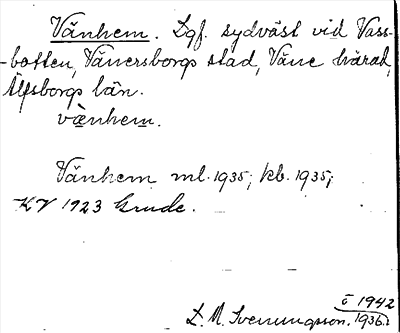 Vänhem. Lgf. sydväst vid Vass-
-botten, Vänersborgs stad, Väne härad,
Älfsborgs län.
vänhem.
Vänhem ml. 1935; kb. 1935;
KV 1923 Grude.
c 1942
L. M. Svenungsson. 1936.